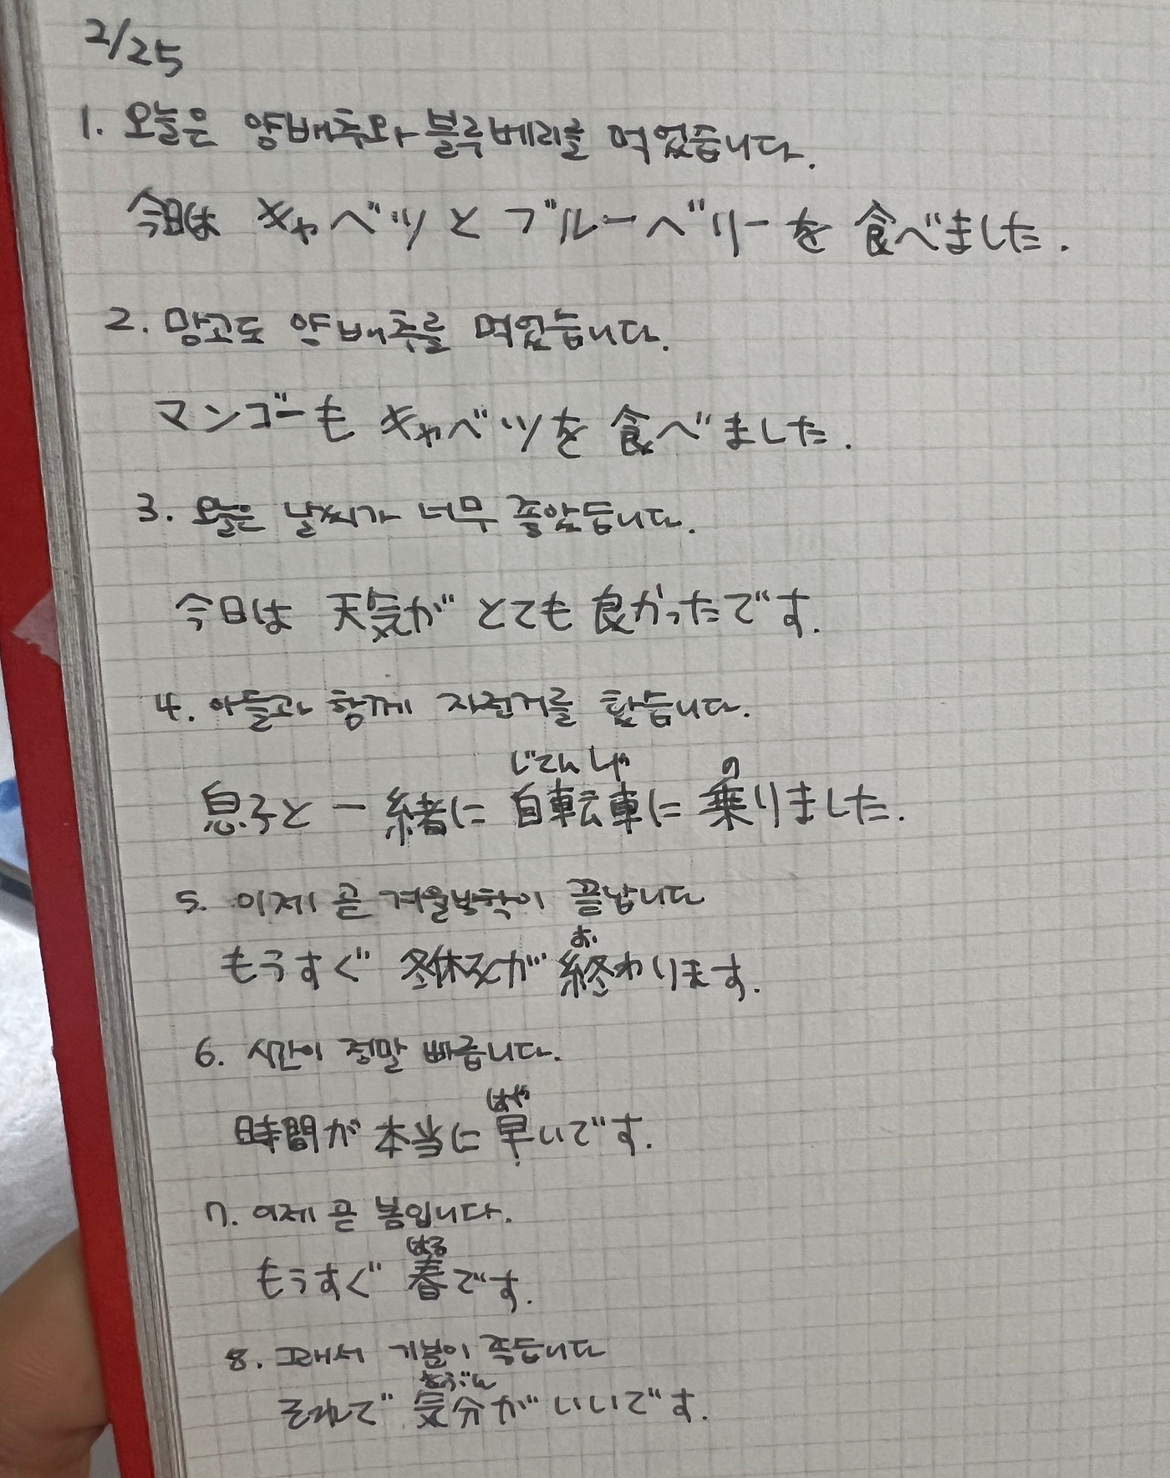 2/25
1. 오늘은 양배추와 블루베리를 먹었습니다.
今日は キャベツと ブルーベリーを 食べました.
2. 망고도 양배추를 먹었습니다.
マンゴーも キャベツを 食べました.
3. 오늘은 날씨가 너무 좋았습니다.
今日は 天気が とても 良かったです.
4. 아들과 함께 자전거를 탔습니다.
じてんしゃ の
息子と 一緒に 自転車に 乗りました.
5. 이제 곧 겨울방학이 끝납니다
お
もうすぐ 冬休みが 終わります.
6. 시간이 정말 빠릅니다.
はや
時間が 本当に 早いです.
7. 이제 곧 봄입니다.
はる
もうすぐ 春です.
8. 그래서 기분이 좋습니다
きぶん
それで 気分が いいです.